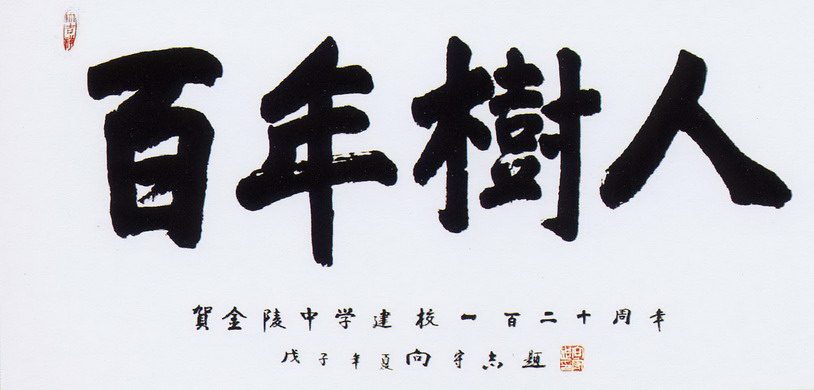 百年樹人
賀金陵中学建校一百二十周年
戊子年夏向守志題